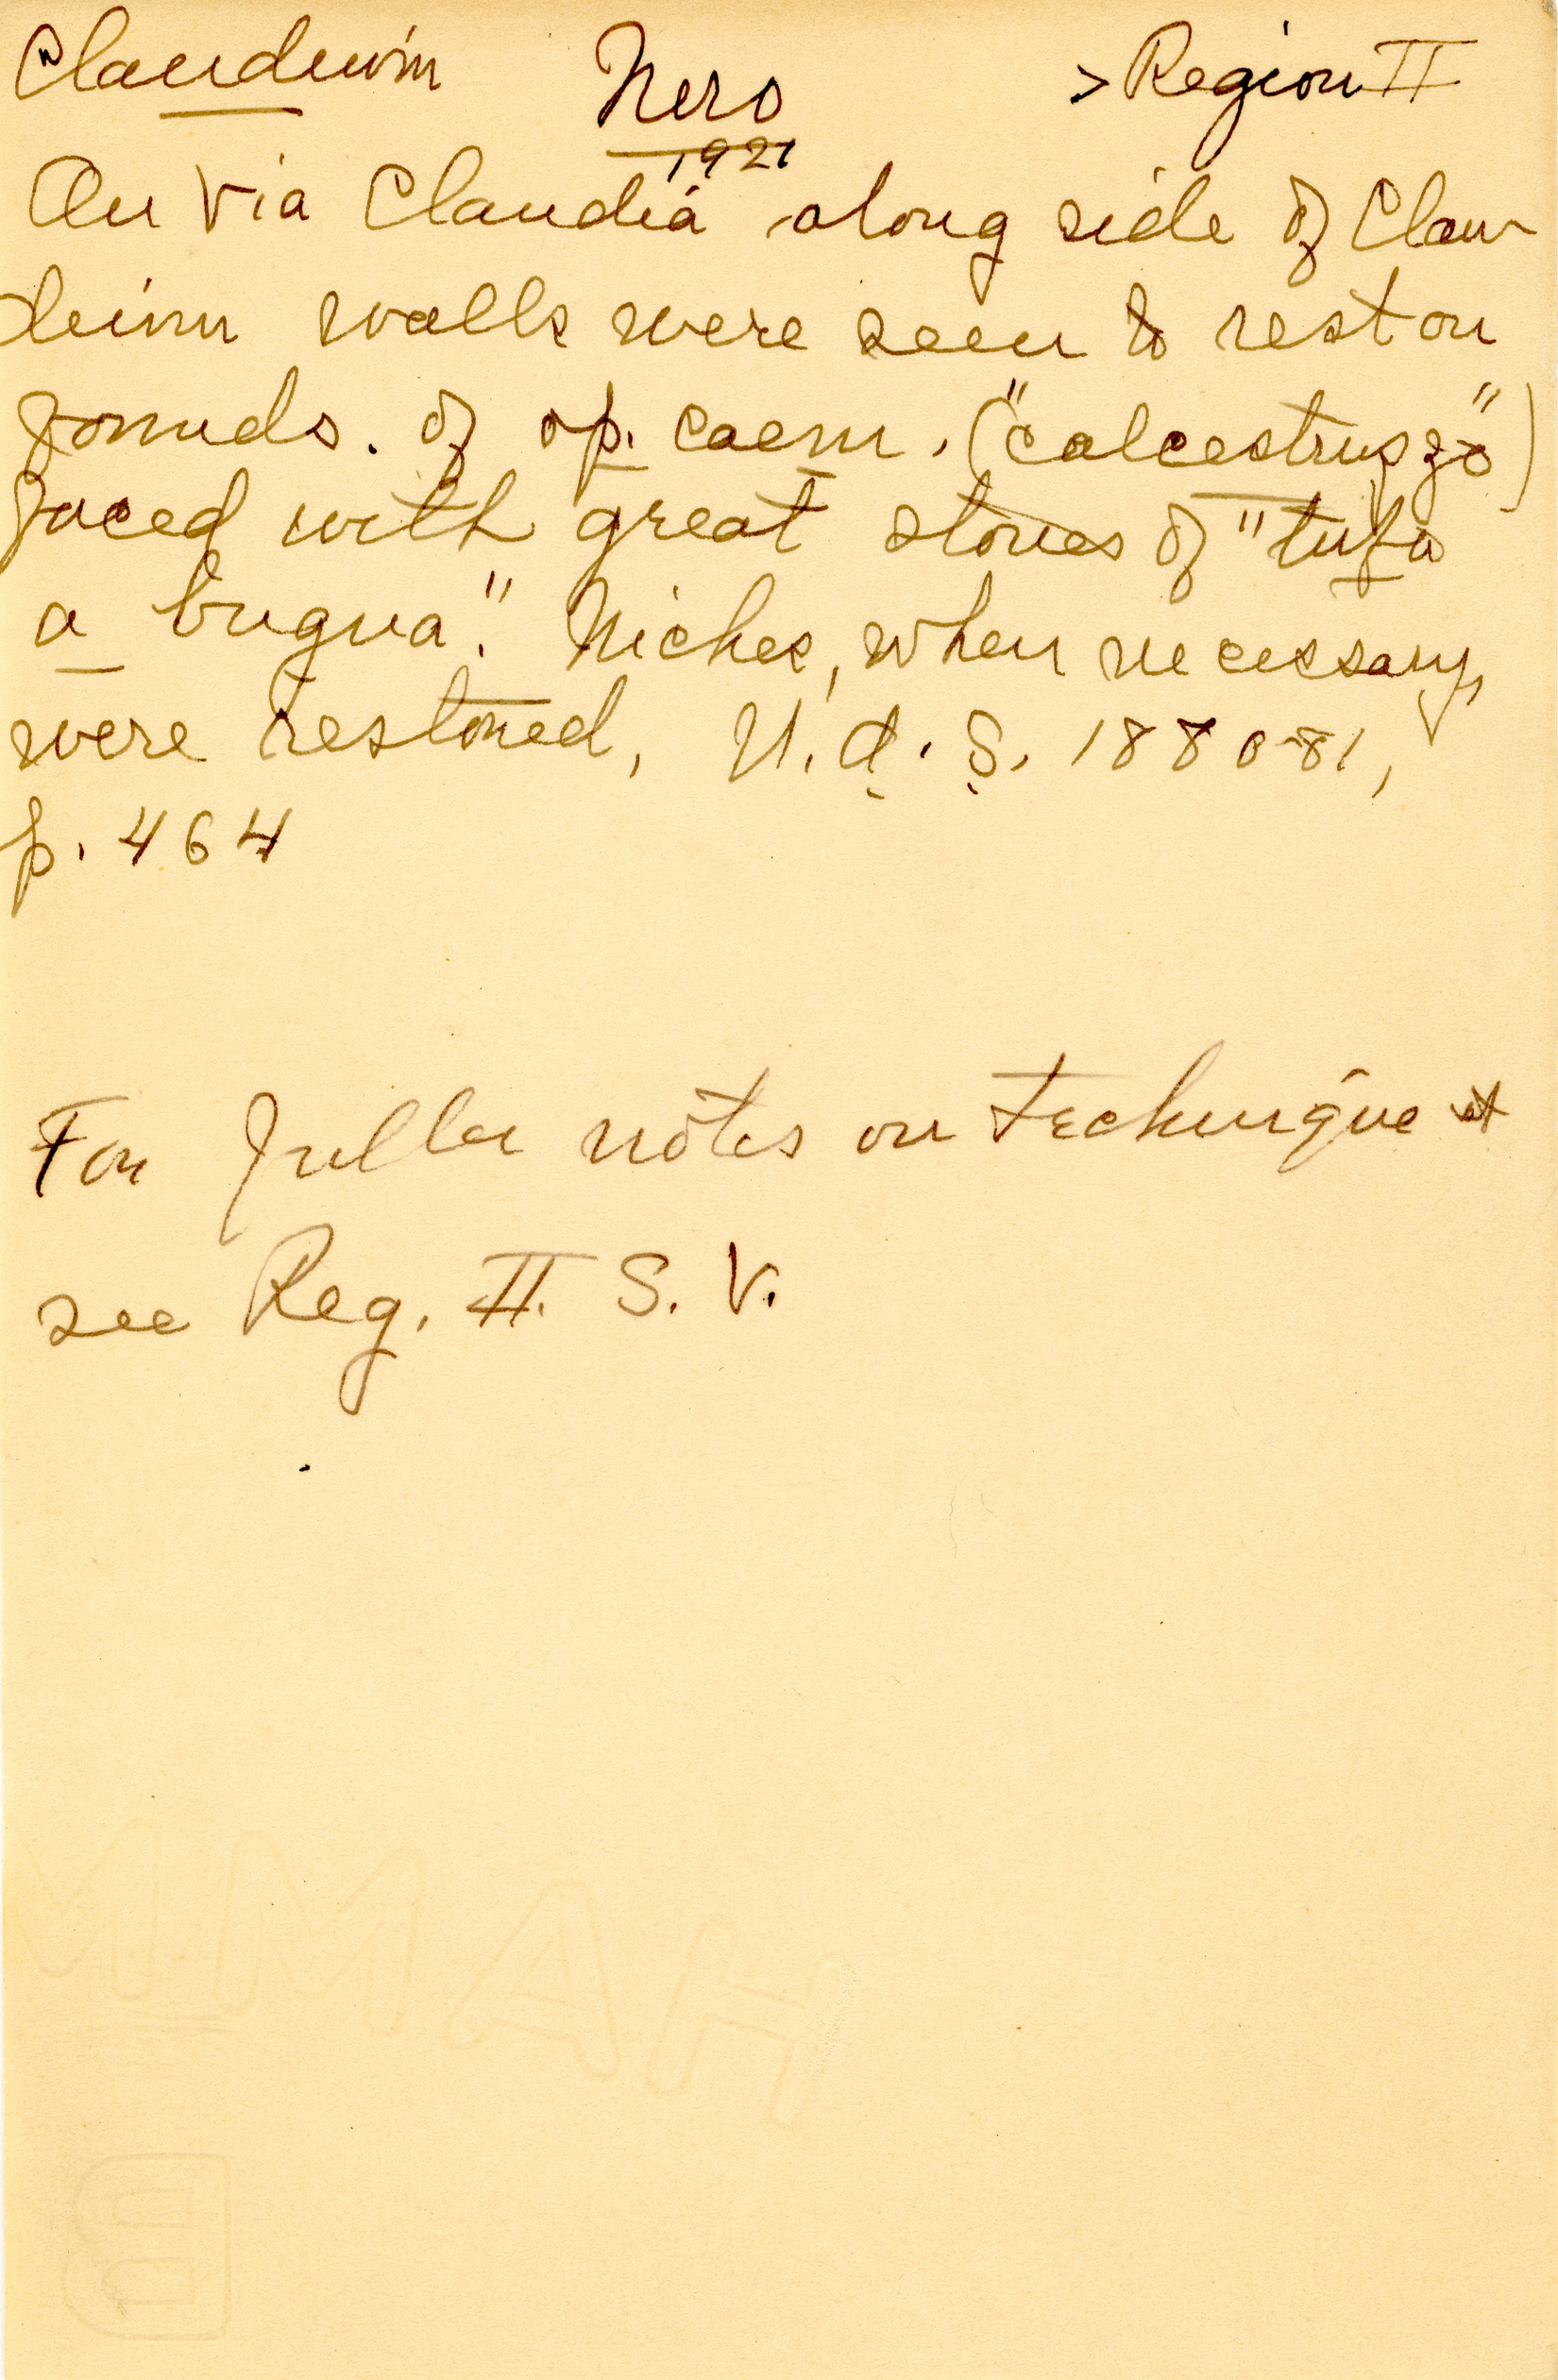 Claudium Nero > Region II
1921
On Via Claudia along side of Clau-
dium walls were seen to rest on
founds. of op. caem. ("calcestruzzo")
faced with great stones of "tufa
a bugna." Niches, when necessary,
were restored, N. d. S. 1880-81,
p. 464
For fuller notes on technique
see Reg. II. S. V.